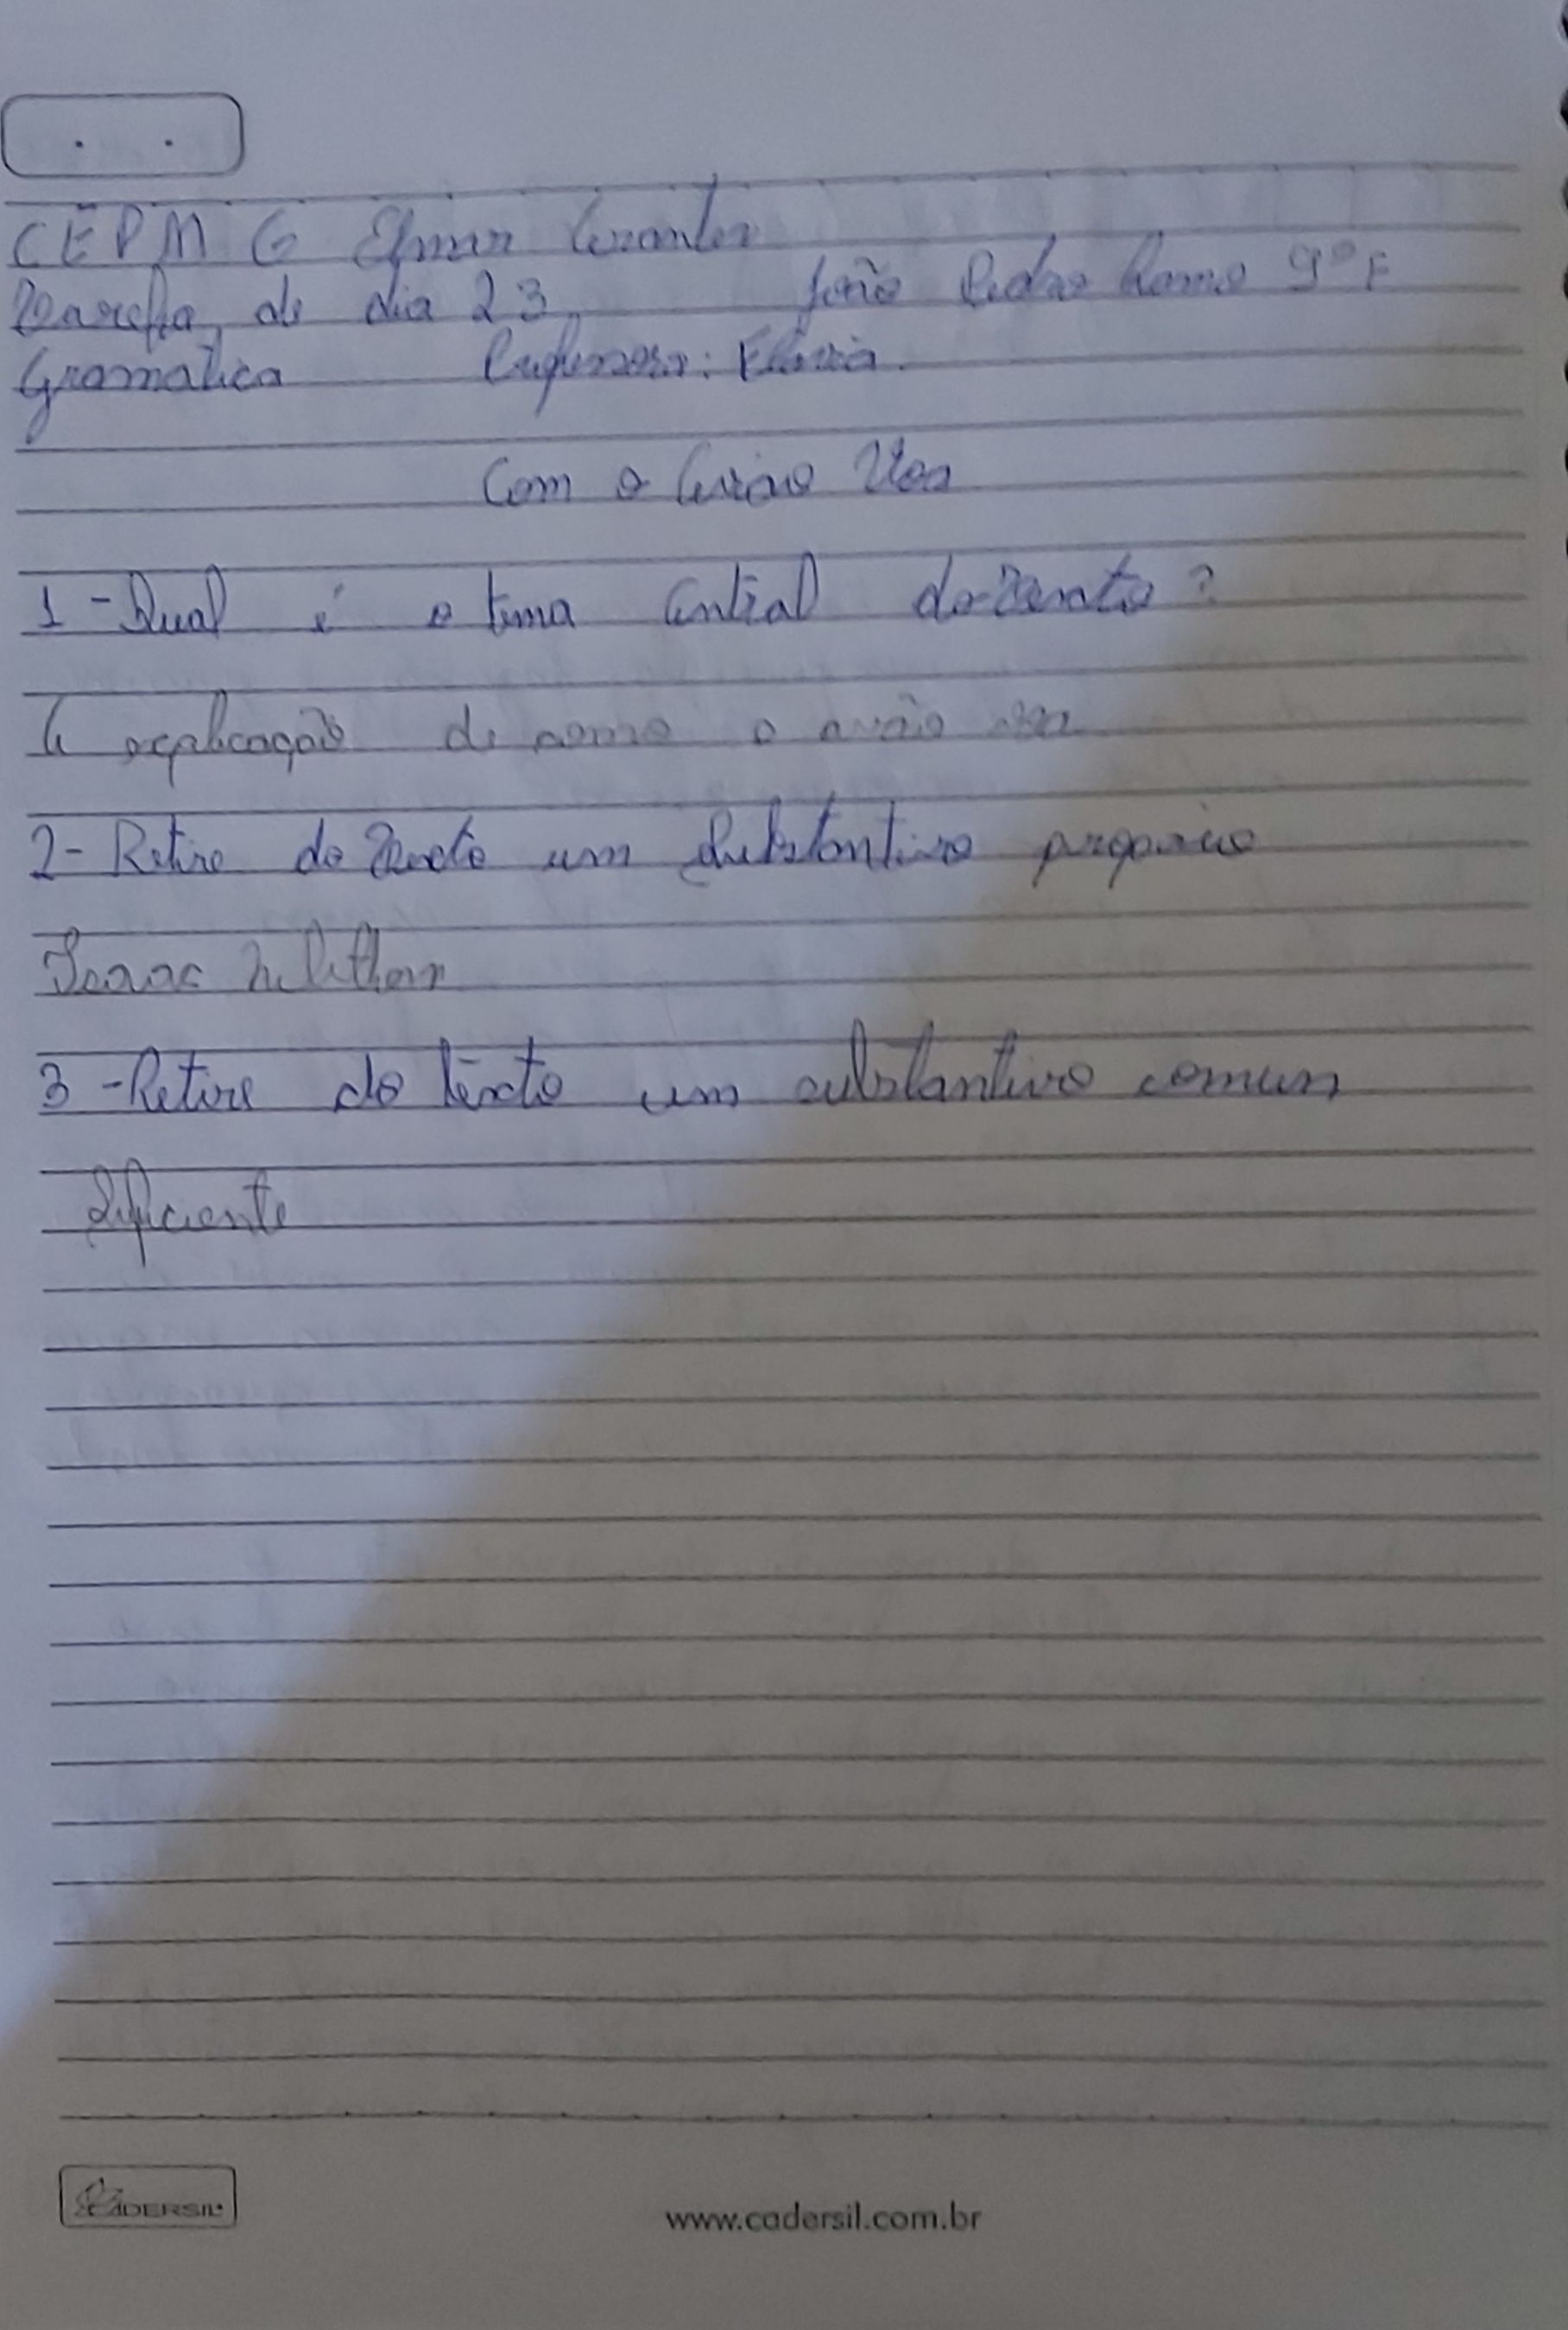 CEPMG
Tarefa do dia 23 João Pedro 9º F
Gramatica Professora: Flavia.
Com o Avião Voa
1 - Qual é o tema central do Texto?
A explicação de como o avião voa
2 - Retire do Texto um substantivo proprio
Isaac
3 - Retire do texto um substantivo comum
Suficiente
CADERSIL
www.cadersil.com.br